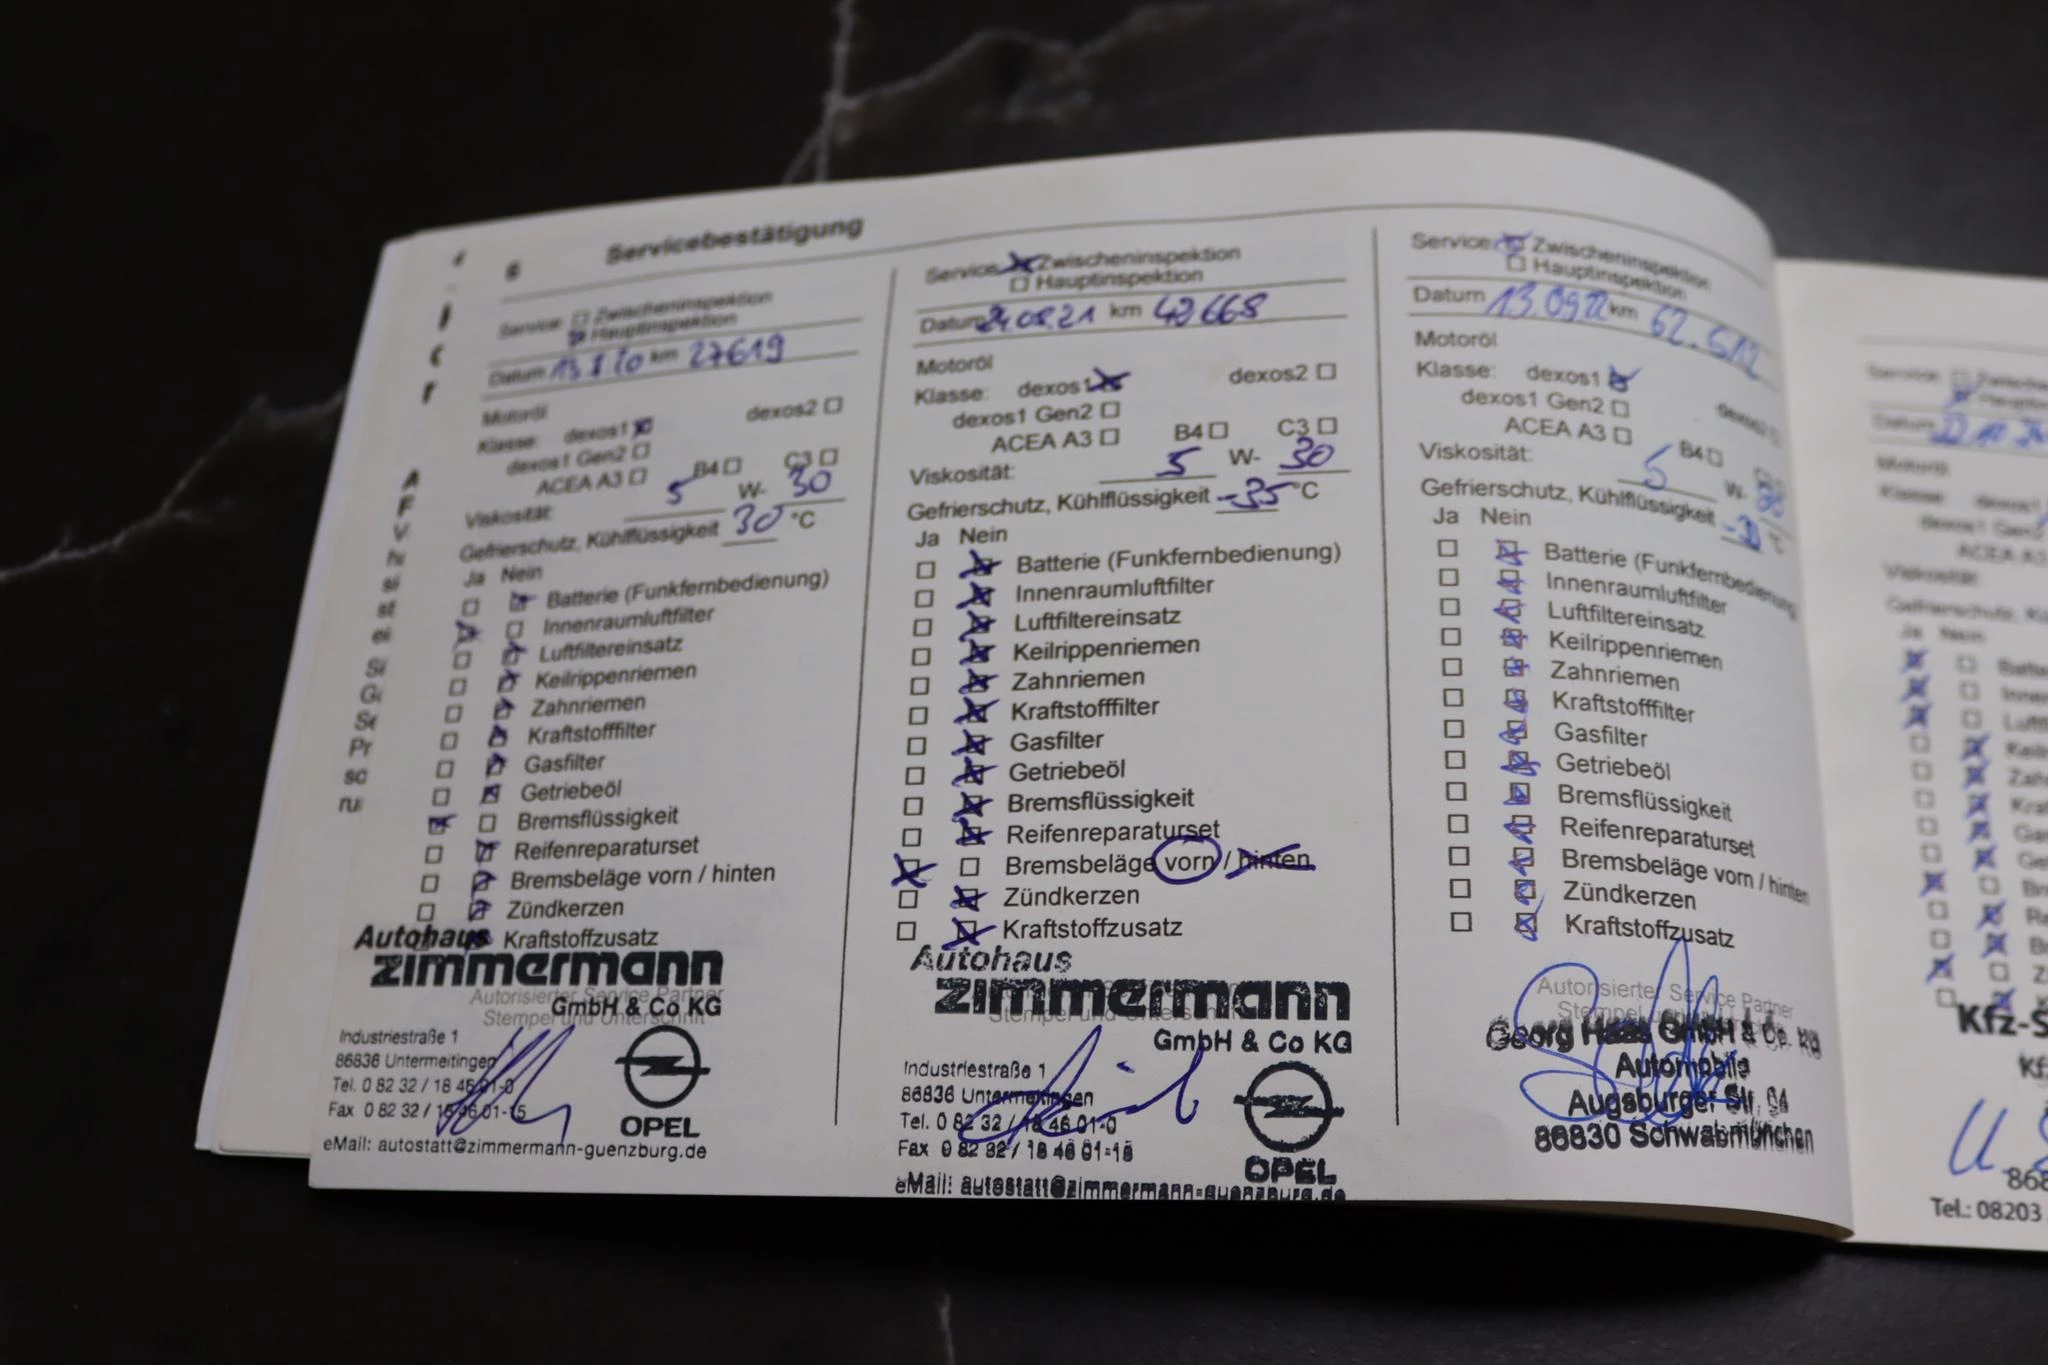 6 Servicebestätigung
Service: Zwischeninspektion
Hauptinspektion
Datum km 27619
Motoröl
Klasse: dexos1 dexos2
dexos1 Gen2
ACEA A3 B4 C3
Viskosität: 5 W- 30
Gefrierschutz, Kühlflüssigkeit 30 °C
Ja Nein
Batterie (Funkfernbedienung)
Innenraumluftfilter
Luftfiltereinsatz
Keilrippenriemen
Zahnriemen
Kraftstofffilter
Gasfilter
Getriebeöl
Bremsflüssigkeit
Reifenreparaturset
Bremsbeläge vorn / hinten
Zündkerzen
Kraftstoffzusatz
Autohaus
zimmermann
Autorisierter Service Partner
GmbH & Co KG
Stempel und Unterschrift
Industriestraße 1
86836 Untermeitingen
Tel. 0 82 32 / 18 46 01-0
Fax 0 82 32 / 18 46 01-15
OPEL
eMail: autostatt@zimmermann-guenzburg.de
Service: Zwischeninspektion
Hauptinspektion
Datum 24.08.21 km 42668
Motoröl
Klasse: dexos1 dexos2
dexos1 Gen2
ACEA A3 B4 C3
Viskosität: 5 W- 30
Gefrierschutz, Kühlflüssigkeit -35 °C
Ja Nein
Batterie (Funkfernbedienung)
Innenraumluftfilter
Luftfiltereinsatz
Keilrippenriemen
Zahnriemen
Kraftstofffilter
Gasfilter
Getriebeöl
Bremsflüssigkeit
Reifenreparaturset
Bremsbeläge vorn / hinten
Zündkerzen
Kraftstoffzusatz
Autohaus
zimmermann
Stempel und Unterschrift
GmbH & Co KG
Industriestraße 1
86836 Untermeitingen
Tel. 0 82 32 / 18 46 01-0
Fax 0 82 32 / 18 46 01-15
OPEL
eMail: autostatt@zimmermann-guenzburg.de
Service: Zwischeninspektion
Hauptinspektion
Datum 13.09.22 km 62.512
Motoröl
Klasse: dexos1 dexos2
dexos1 Gen2
ACEA A3 B4
Viskosität: 5 W-
Gefrierschutz, Kühlflüssigkeit °C
Ja Nein
Batterie (Funkfernbedienung)
Innenraumluftfilter
Luftfiltereinsatz
Keilrippenriemen
Zahnriemen
Kraftstofffilter
Gasfilter
Getriebeöl
Bremsflüssigkeit
Reifenreparaturset
Bremsbeläge vorn / hinten
Zündkerzen
Kraftstoffzusatz
Autorisierter Service Partner
Georg Haas GmbH & Co. KG
Automobile
Augsburger Str. 64
86830 Schwabmünchen
Service:
Datum
Motoröl
Klasse:
Viskosität:
Ja Nein
Kfz-S
Tel.: 08203